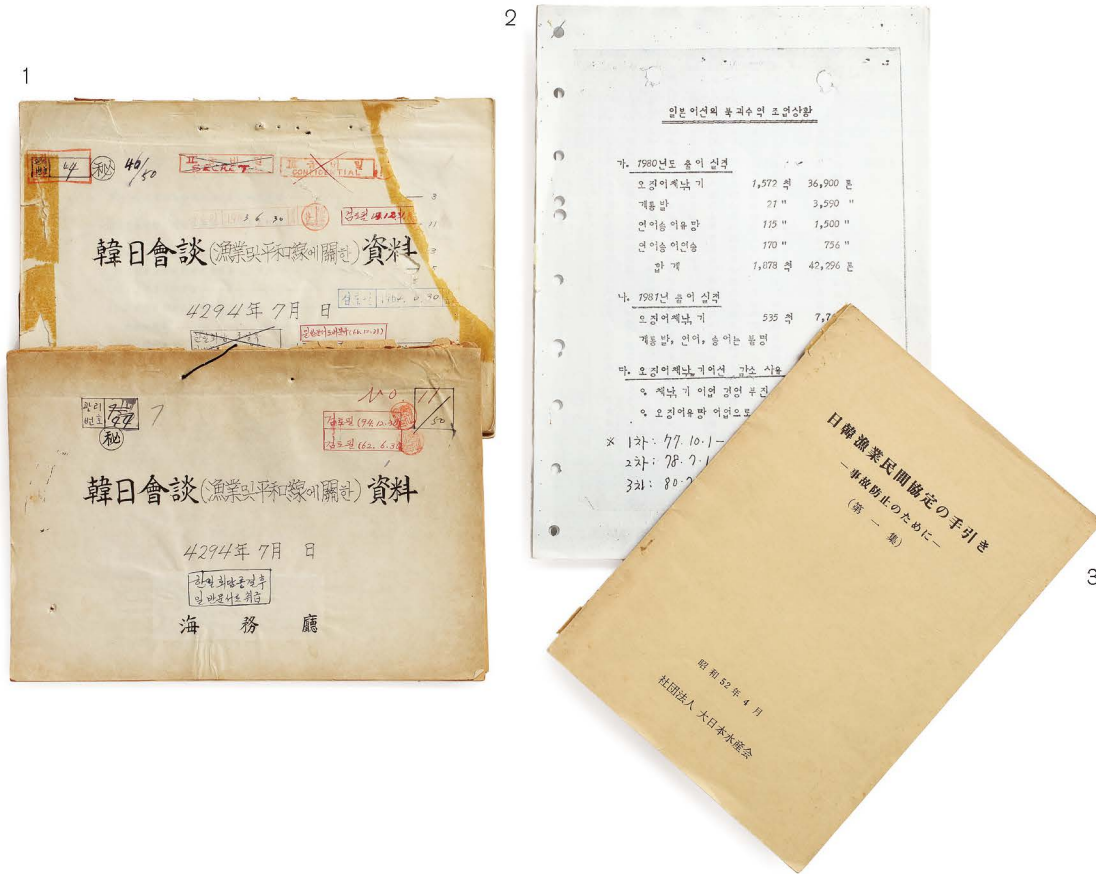 1
46/50
SECRET
CONFIDENTIAL
韓日會談(漁業및平和線에關한)資料
4294年 7月 日
관리
번호
秘
No. 11
50
검토필 (74.12.
검토필 (62. 6. 3
韓日會談(漁業및平和線에關한)資料
4294年 7月 日
한일회담종결후
일반문서로취급
海務廳
2
일본어선의 북괴수역 조업상황
가. 1980년도 출어 실적
오징어채낚기 1,572 척 36,900 톤
게통발 21 " 3,590 "
연어숭어유망 115 " 1,500 "
연어숭어연승 170 " 756 "
합 계 1,878 척 42,296 톤
나. 1981년 출어 실적
오징어채낚기 535 척 7,7
게통발, 연어, 숭어는 불명
다. 오징어채낚기어선 감소 사유
o. 채낚기 어업 경영 부진
o. 오징어유망 어업으로
※ 1차: 77.10.1-
2차: 78.7.1
3차: 80.7
3
日韓漁業民間協定の手引き
―事故防止のために―
(第一集)
昭和52年4月
社団法人 大日本水産会